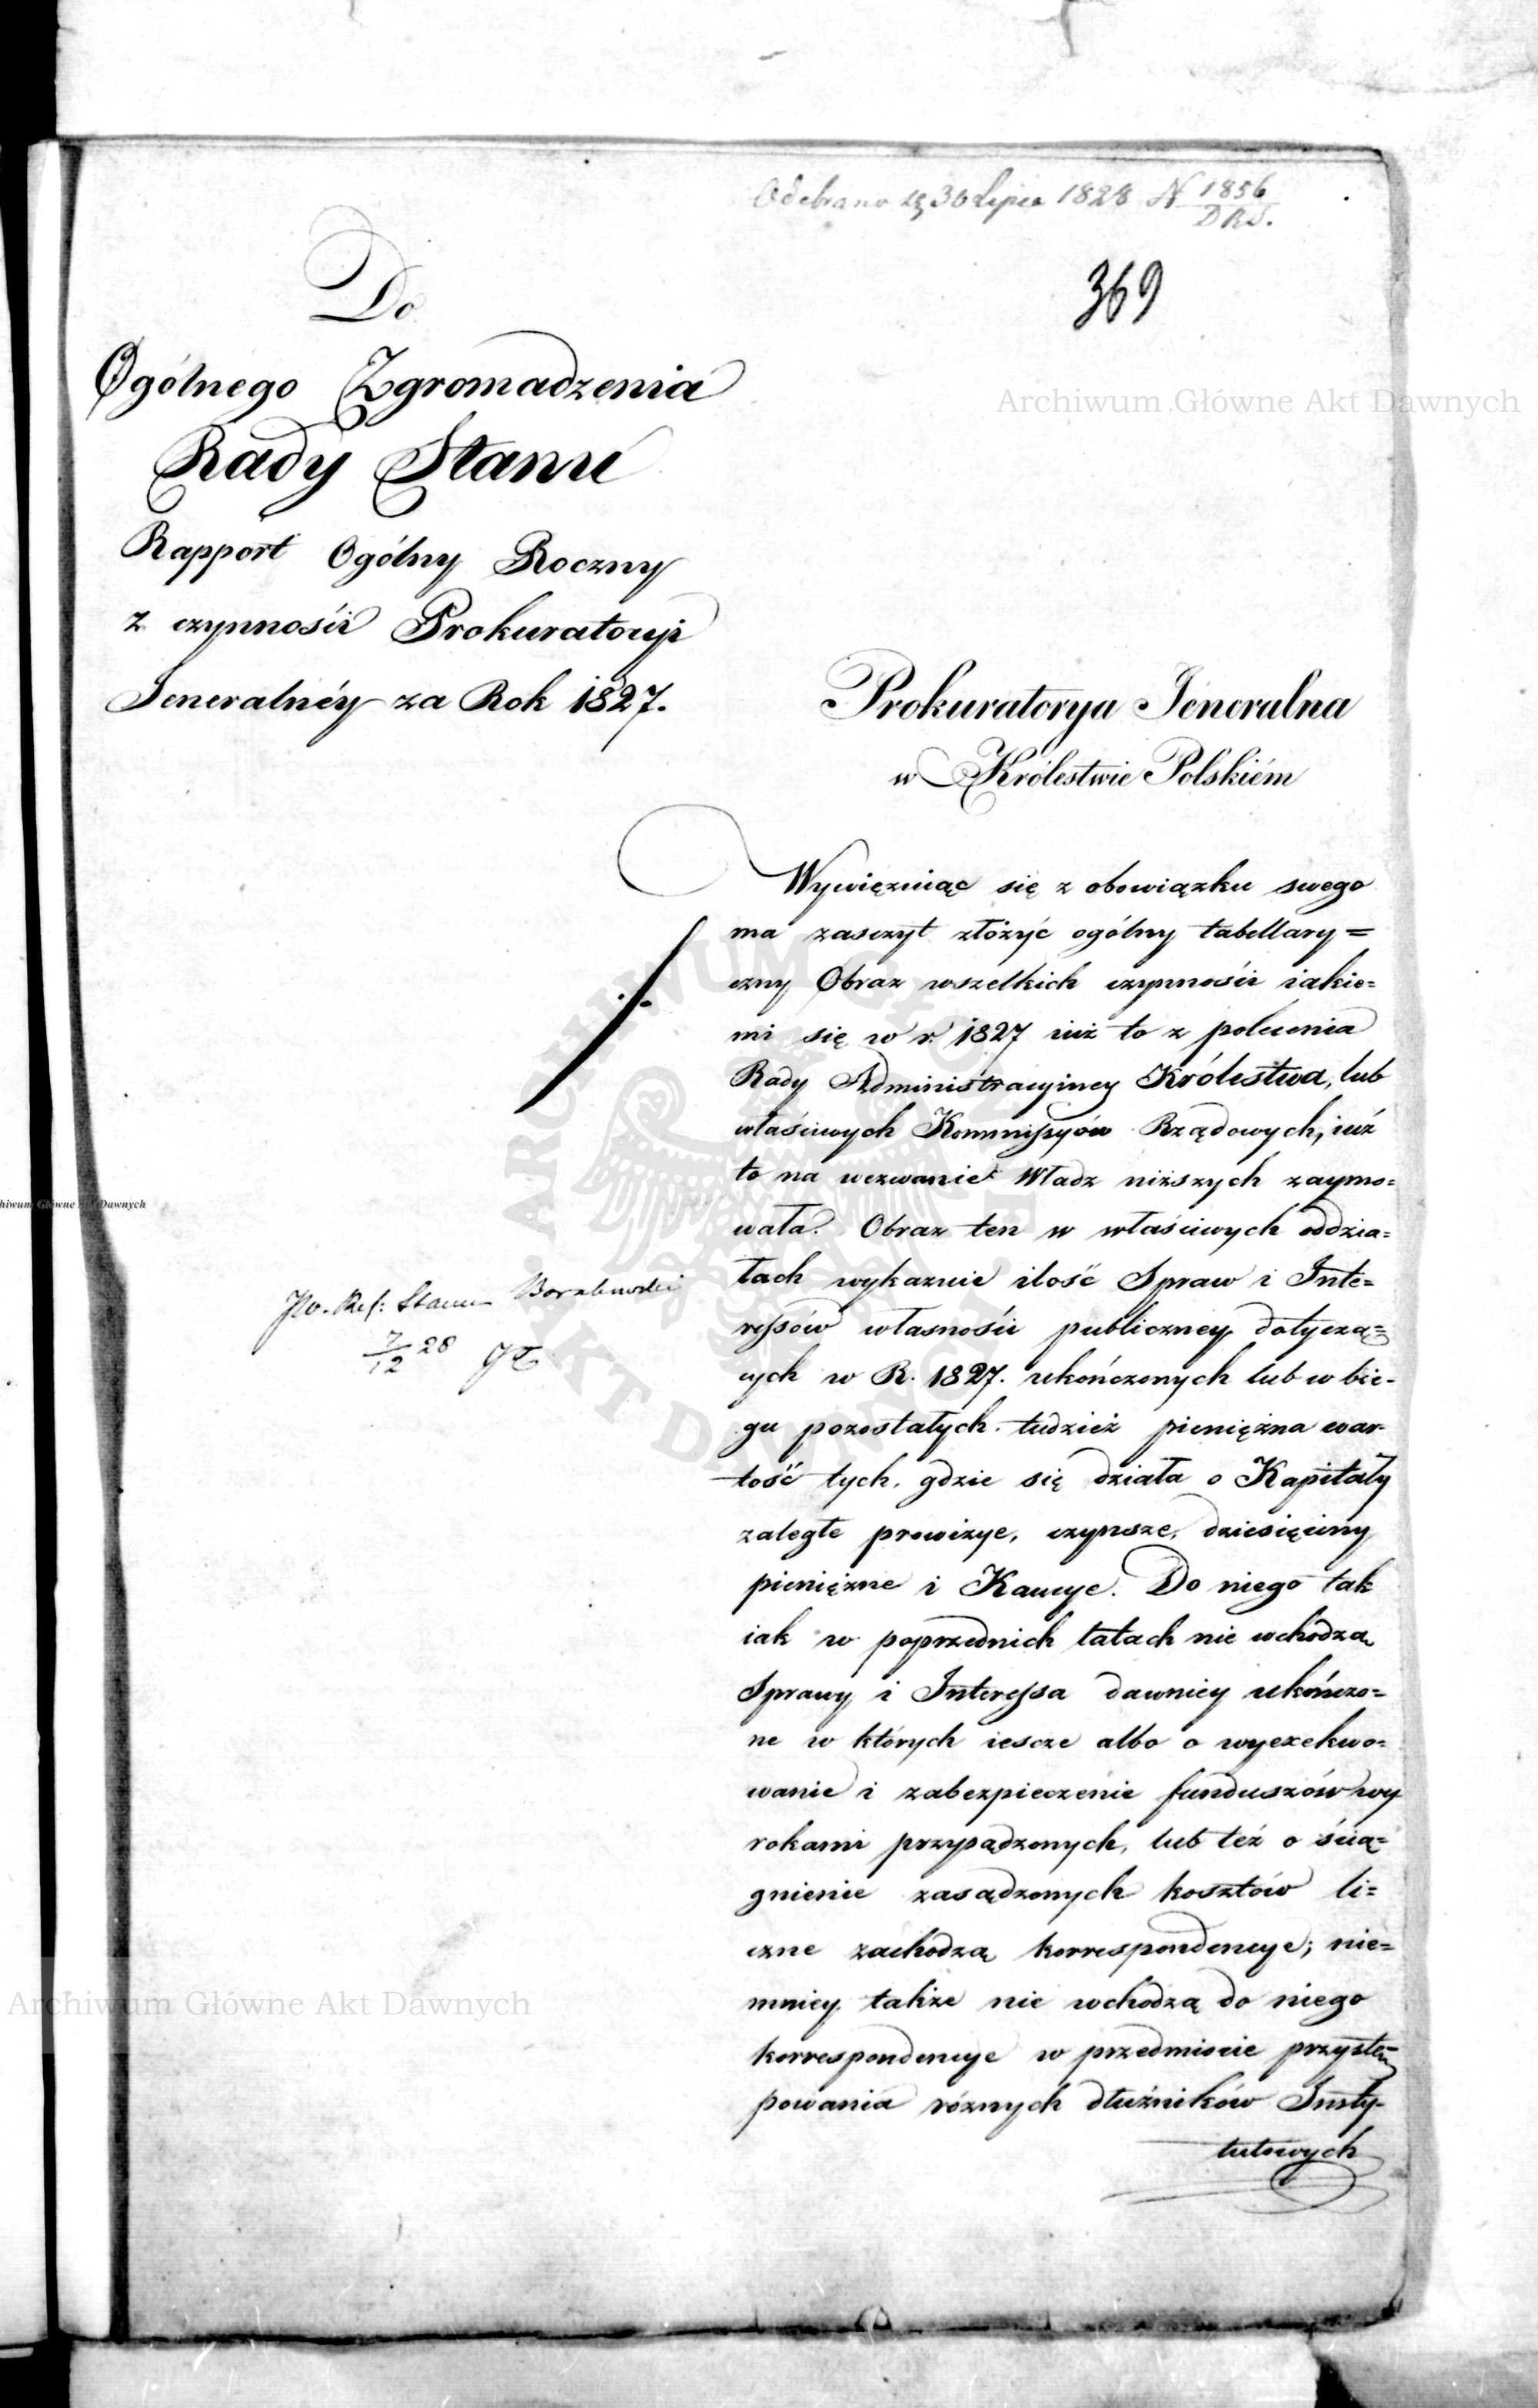 Odebrano d. 30 Lipca 1828 N 1856
D R S.
369
Do
Ogólnego Zgromadzenia
Rady Stanu
Rapport Ogólny Roczny
z czynności Prokuratoryi
Jeneralnéy za Rok 1827.
Prokuratorya Jeneralna
w Królestwie Polskiém
Wywięzuiąc się z obowiązku swego
ma zasczyt złożyć ogólny tabellary=
czny Obraz wszelkich czynności iakie=
mi się w r. 1827 iuż to z polecenia
Rady Administracyiney Królestwa, lub
właściwych Kommissyów Rządowych, iuż
to na wezwanie Władz niższych zaymo=
wała. Obraz ten w właściwych oddzia=
łach wykazuie ilość Spraw i Inte=
ressów własności publiczney dotyczą=
cych w R. 1827. ukończonych lub w bie-
gu pozostałych. tudzież pieniężna war-
tość tych, gdzie się działa o Kapitały
zaległe prowizye, czynsze, dziesięciny
pieniężne i Kaucye. Do niego tak
iak w poprzednich latach nie wchodzą
Sprawy i Interessa dawniey ukończo=
ne w których iescze albo o wyexekwo=
wanie i zabezpieczenie funduszów wy
rokami przysądzonych, lub też o ścią=
gnienie zasądzonych kosztów li=
czne zachodzą korrespondencye; nie=
mniey także nie wchodzą do niego
korrespondencye w przedmiocie przystę=
powania różnych dłużników Insty-
tutowych
JW. Ref: Stanu
7/12 28
Archiwum Główne Akt Dawnych
Archiwum Główne Akt Dawnych
hiwum Główne Akt Dawnych
ARCHIWUM GŁÓWNE AKT DAWNYCH